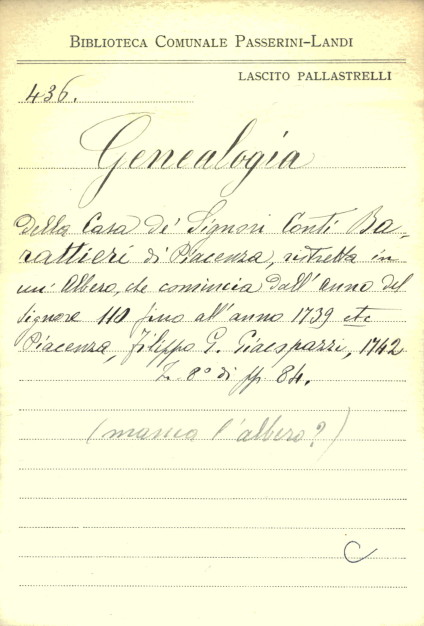 BIBLIOTECA COMUNALE PASSERINI-LANDI
LASCITO PALLASTRELLI
436.
Genealogia
Della Casa de' Signori Conti Ba-
rattieri di Piacenza, ristretta in
un' Albero, che comincia dall' anno del
Signore 110 fino all' anno 1739 etc
Piacenza, Filippo G. Giacopazzi, 1742
8° di pp 84.
(manca l'albero?)
C